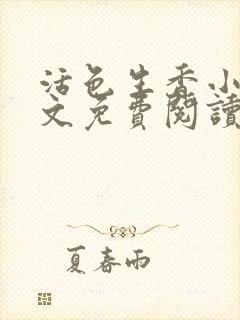 活色生香小
文免費閱讀
夏春雨